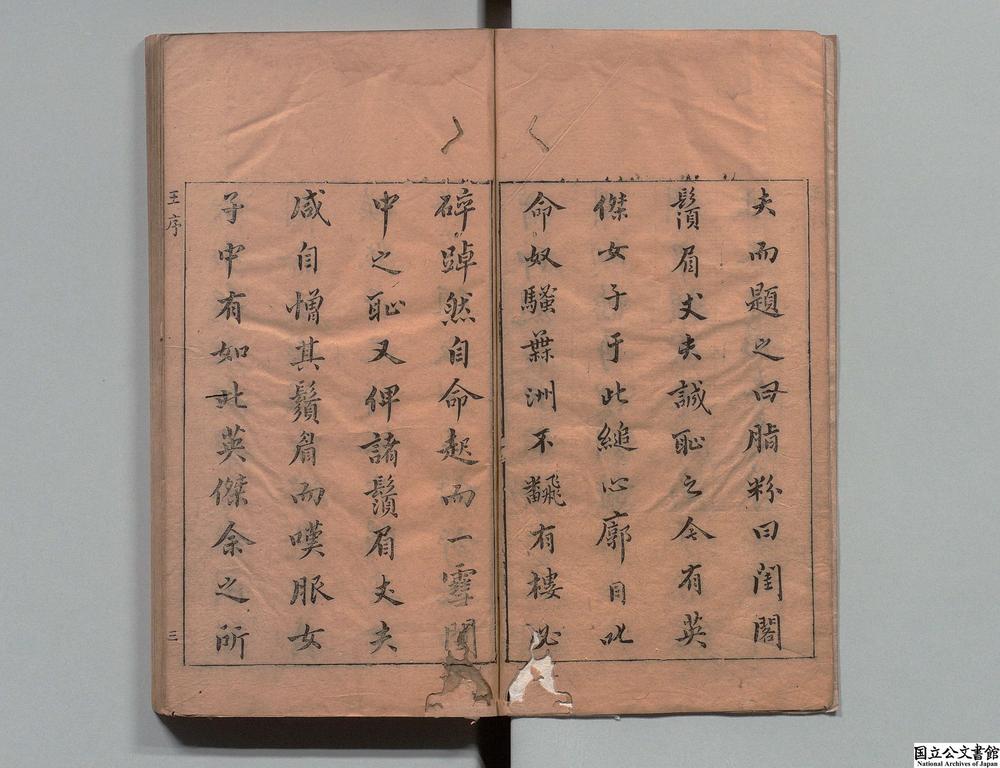 夫而題之曰脂粉曰閨閣
鬚眉丈夫誠恥之今有英
傑女子于此縋心廓目叱
命奴騷葉洲不飜有樓必
碎踔然自命起而一雪閨
中之恥又俾諸鬚眉丈夫
咸自憎其鬚眉而嘆服女
子中有如此英傑余之所
王序
三
国立公文書館
National Archives of Japan